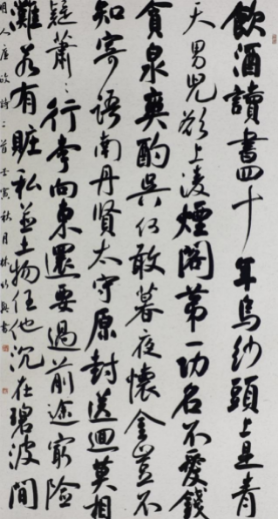 飲酒讀書四十年烏紗頭上是青
天男兒欲上凌煙閣第一功名不愛錢
貪泉爽酌何敢暮夜懷金豈不
知寄語南丹賢太守原封送迴莫相
疑蕭〻行李向東還要過前途險
灘若有贓私並土物任他沉在碧波間
明人廉政詩二首壬寅秋月林書